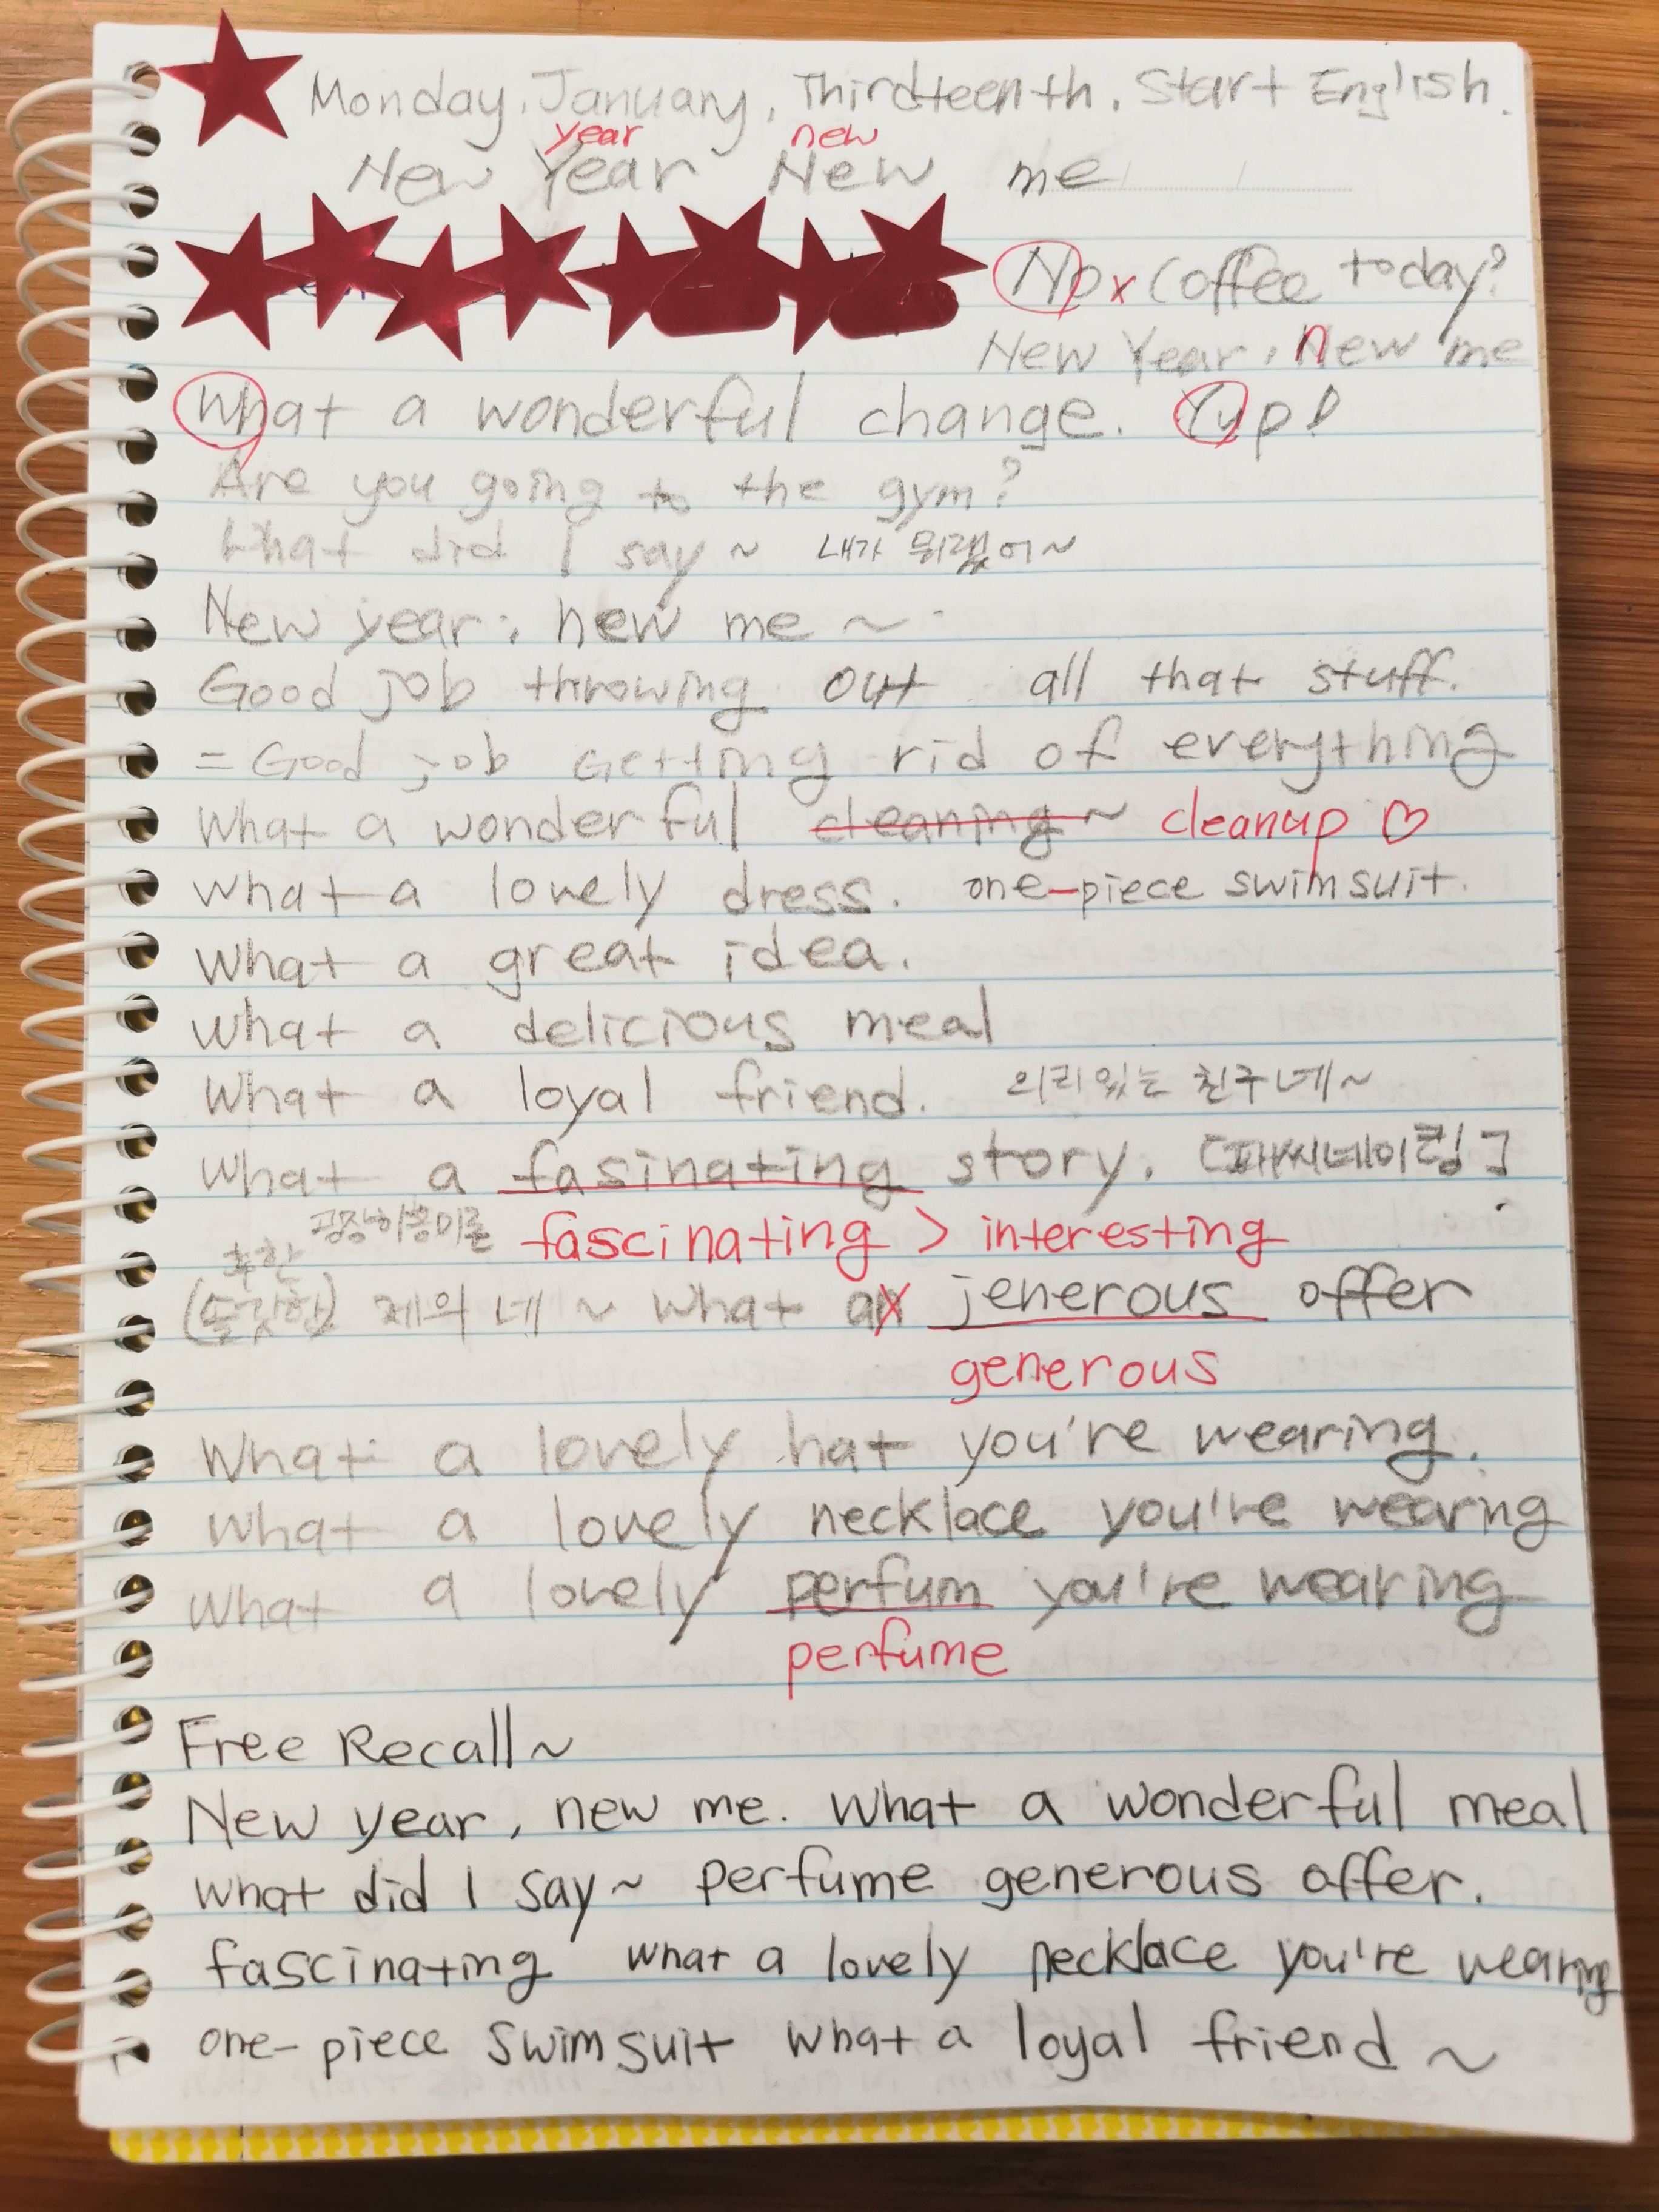 Monday, January, Thirdteenth. Start English.
year new
New Year New me
No x Coffee today?
New Year, new me
What a wonderful change. Yup!
Are you going to the gym?
What did I say ~ 내가 뭐랬어~
New year, new me ~
Good job throwing out all that stuff.
= Good job Getting rid of everything
What a wonderful cleaning ~ cleanup ♡
What a lovely dress. one-piece swimsuit.
What a great idea.
What a delicious meal
What a loyal friend. 의리있는 친구네~
What a fasinating story. [패씨네이팅]
굉장히흥미로운 fascinating > interesting
후한
(솔깃한) 제의네 ~ What a jenerous offer
generous
What a lovely hat you're wearing.
What a lovely necklace you're wearing
What a lovely perfum you're wearing
perfume
Free Recall~
New year, new me. What a wonderful meal
What did I say~ perfume generous offer.
fascinating what a lovely necklace you're wearing
one-piece swimsuit what a loyal friend ~